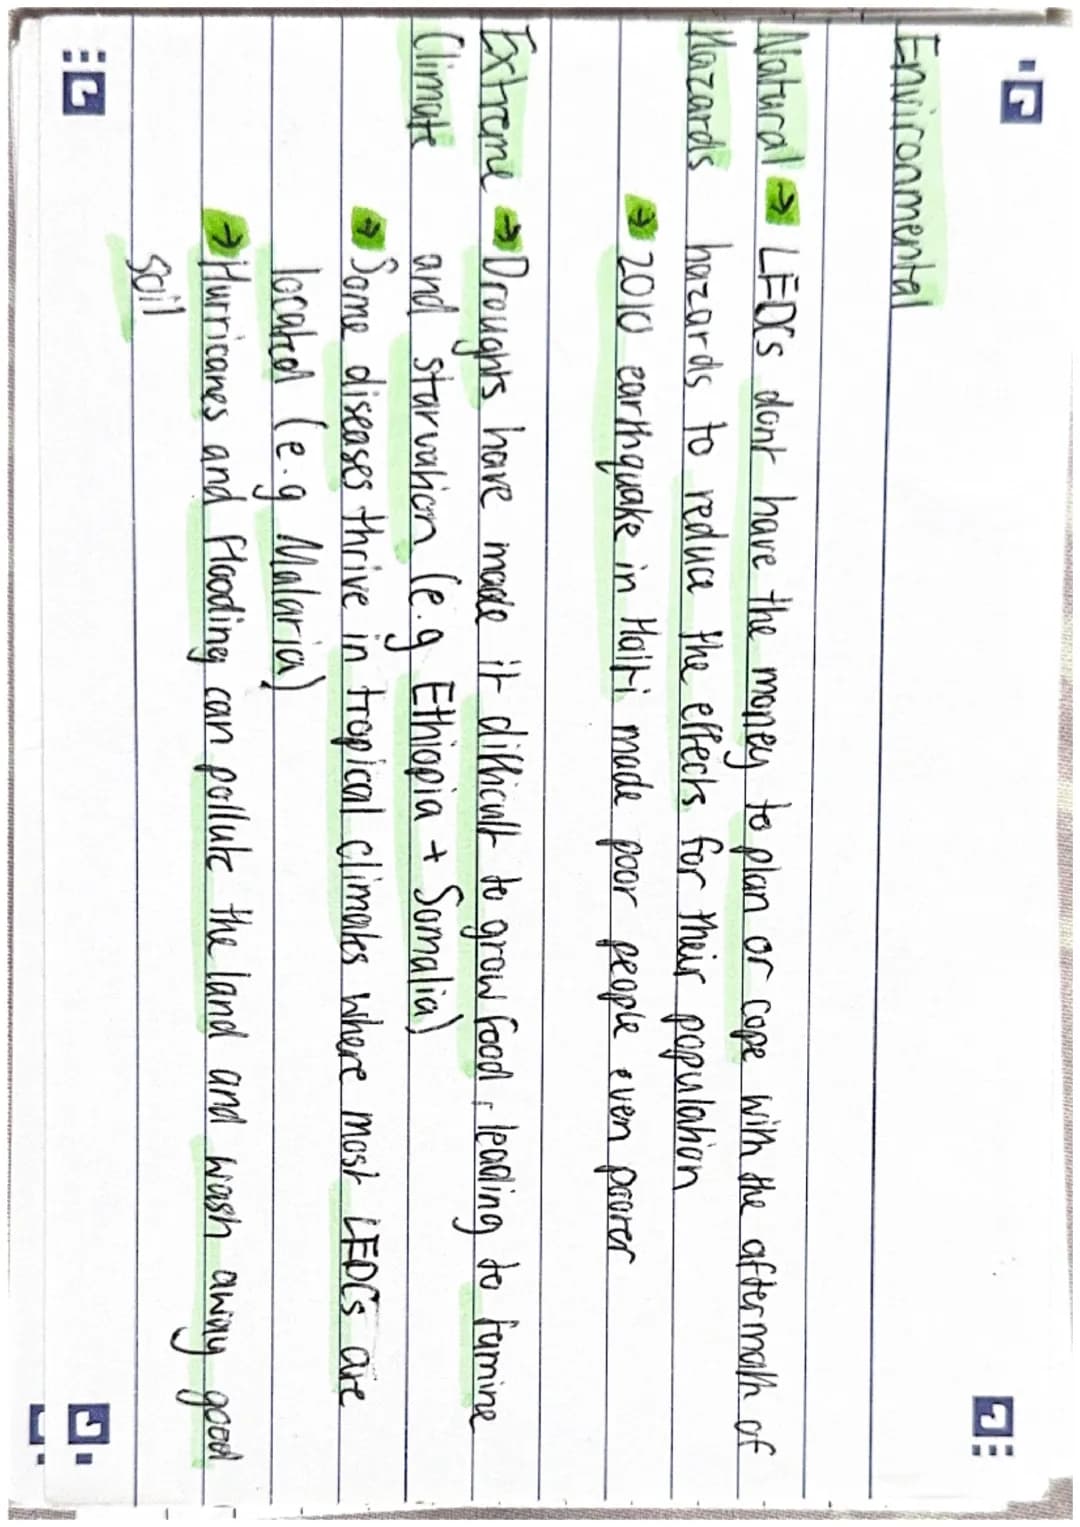 Environmental
Natural → LEDCs dont have the money to plan or cope with the aftermath of
Hazards hazards to reduce the effects for their population
→ 2010 earthquake in Haiti made poor people even poorer
Extreme → Droughts have made it difficult to grow food, leading to famine
Climate and starvation (e.g Ethiopia + Somalia)
→ Some diseases thrive in tropical climates where most LEDCs are
located (e.g Malaria)
→ Hurricanes and flooding can pollute the land and wash away good
soil